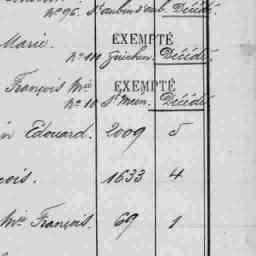 No 96. St aubin d'aub. Décédé.
Marie. EXEMPTÉ
No 111 Guichen. Décédé.
François Mie EXEMPTÉ
No 10 St Méen. Décédé
in Edouard. 2009 5
çois. 1633 4
Mie François. 69 1